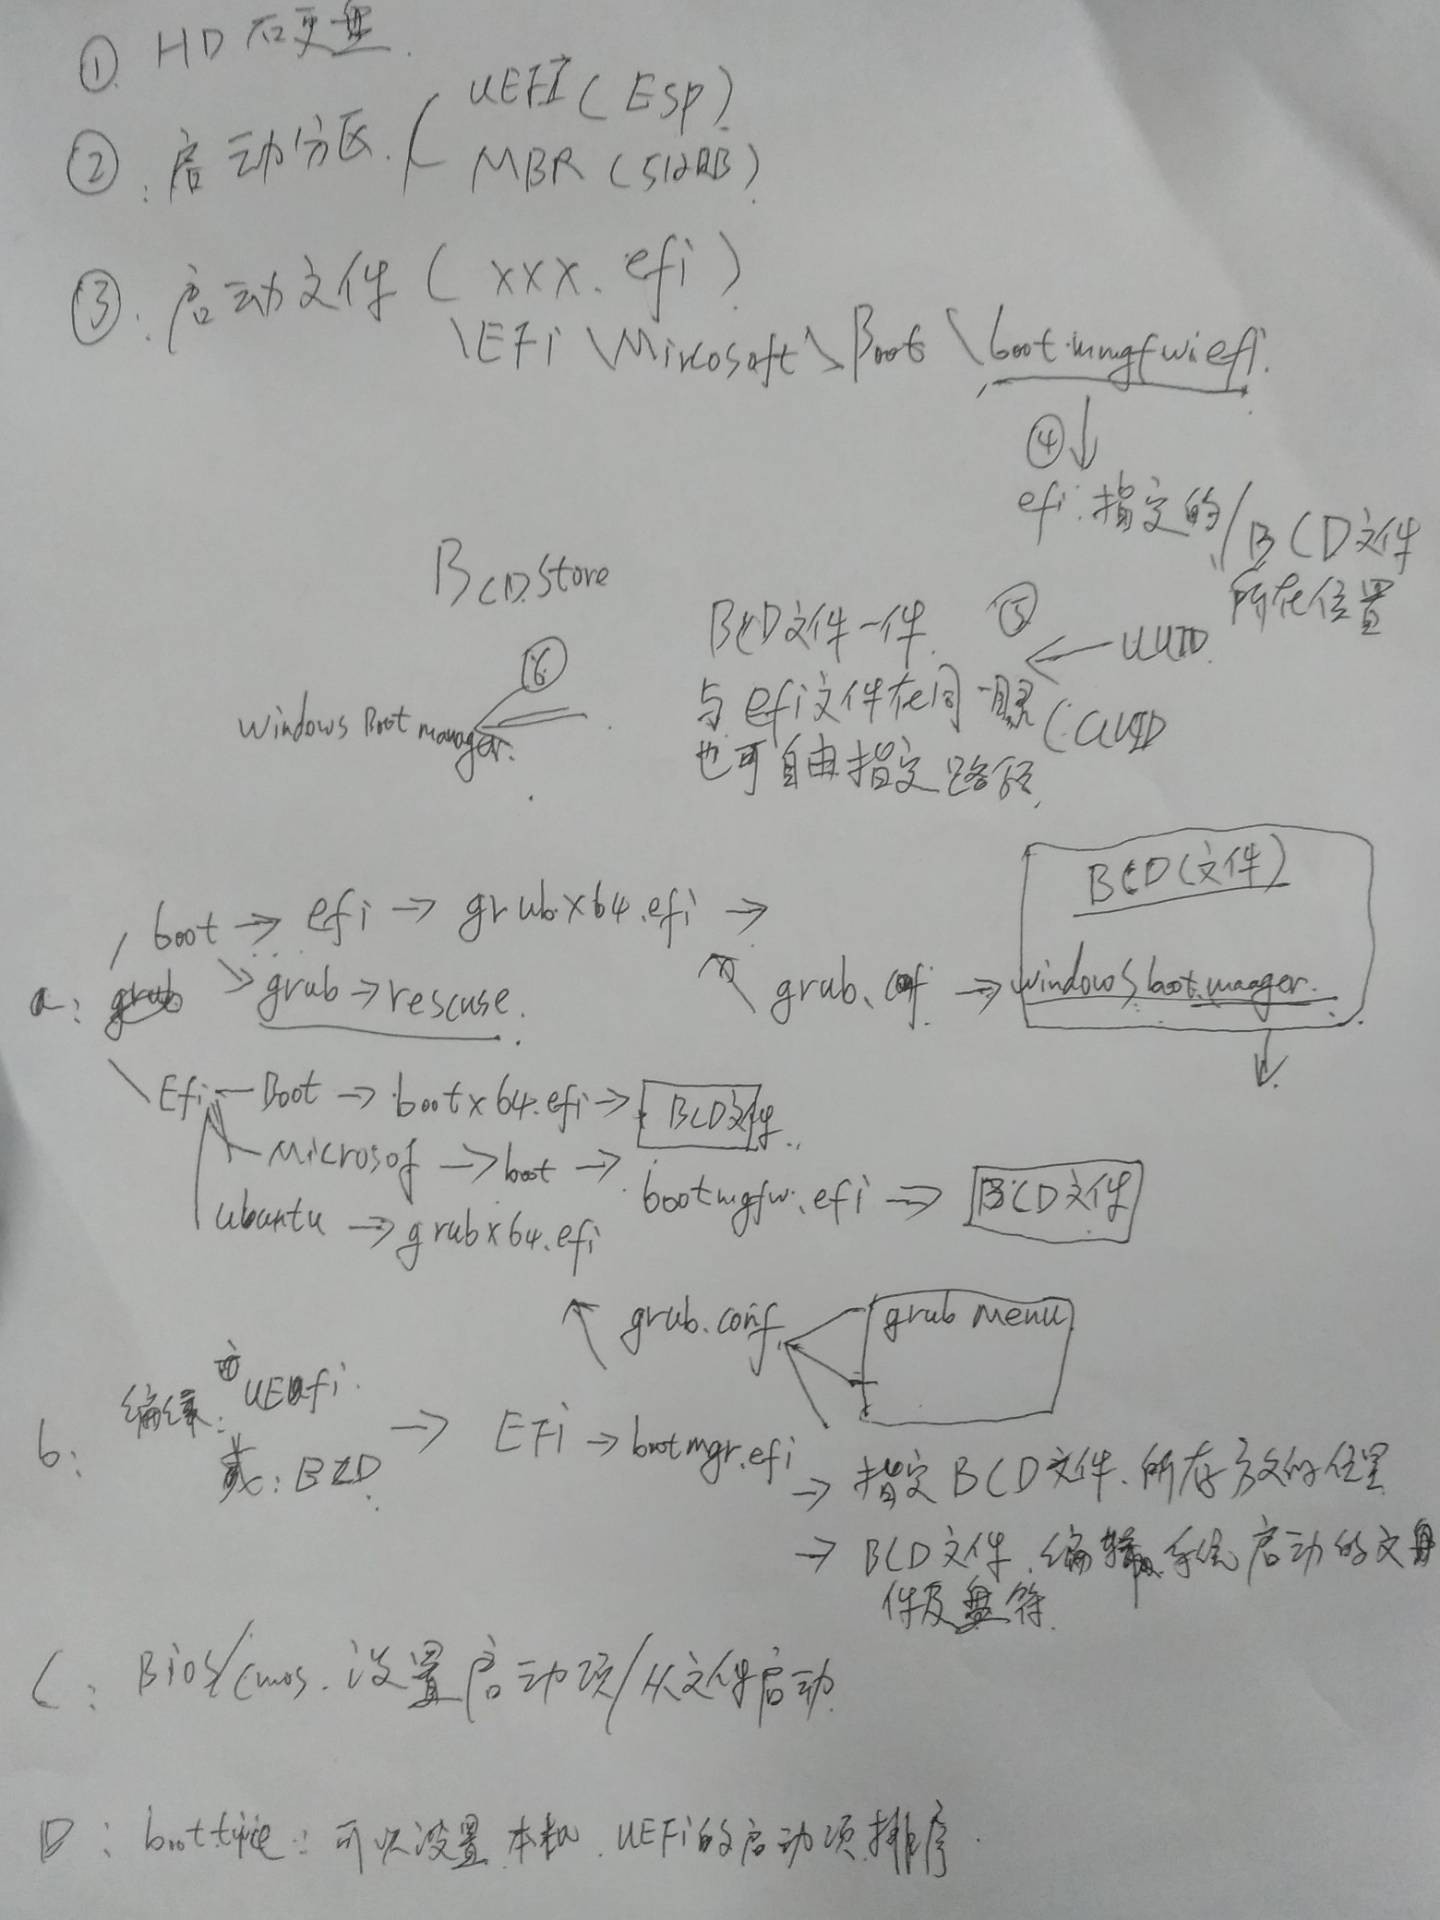 ① HD 硬盘
②:启动分区.( UEFI ( ESP )
MBR ( 512 )
③:启动文件 ( xxx.efi )
\EFi \Mircosoft\Boot \boot.
④
efi:指定的/BCD文件
所在位置
BCD.Store
BCD文件一件
⑤
UUID
与efi文件在同一
(:GUID
也可自由指定路径
⑥
windows Boot manager.
BCD(文件)
boot → efi → grub x64.efi →
a: grub
grub → rescuse.
grub.conf → windows boot.maager.
Efi — Boot → bootx64.efi → BCD文件
Microsof → boot → bootmgfw.efi → BCD文件
ubuntu → grubx64.efi
grub.conf
grub menu
b:
或:BCD
→ EFi → bootmgr.efi
→ 指定BCD文件.所存放的位置
→ BCD文件.编辑系统启动的文
件及盘符
C: Bios/cmos.设置启动项/从文件启动
D: 可以设置本机.UEFi的启动项排序.